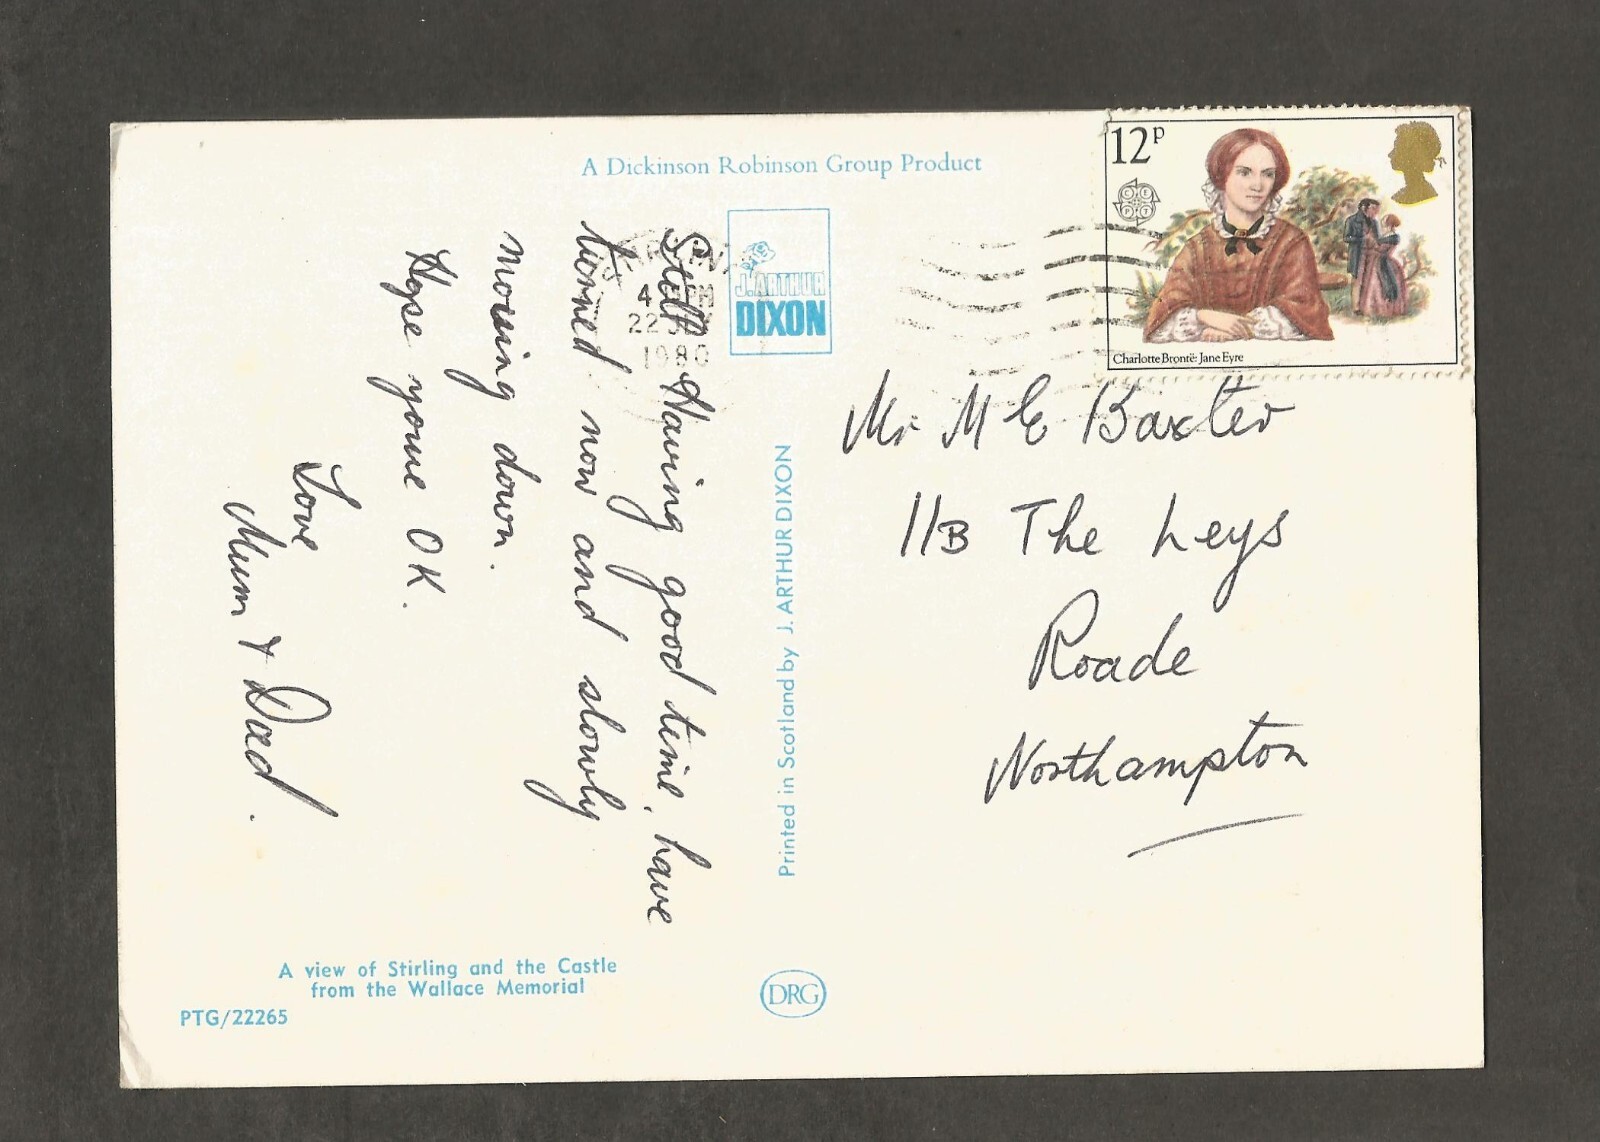 A Dickinson Robinson Group Product
J. ARTHUR
DIXON
12P
CEPT
Charlotte Brontë: Jane Eyre
4
22
1980
Still Having good time, have
turned now and slowly
moving down.
Hope youre OK.
Love
Mum & Dad.
Printed in Scotland by J. ARTHUR DIXON
Mr M E Baxter
11B The Leys
Roade
Northampton
A view of Stirling and the Castle
from the Wallace Memorial
PTG/22265
DRG